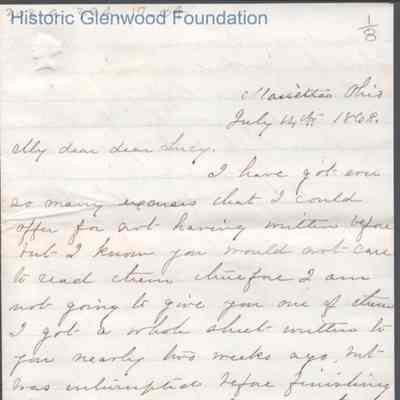 Historic Glenwood Foundation
1/8
Marietta Ohio
July 14th 1868.
My dear dear Lucy.
I have got ever
so many excuses that I could
offer for not having written before
but I know you would not care
to read them therefore I am
not going to give you one of them
I got a whole sheet written to
you nearly two weeks ago, but
was interrupted before finishing